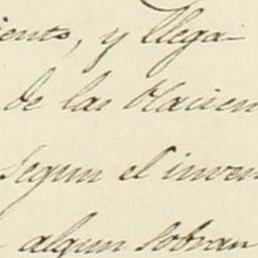 iento, y llega-
de las Hacien
Segun el inven
algun sobran